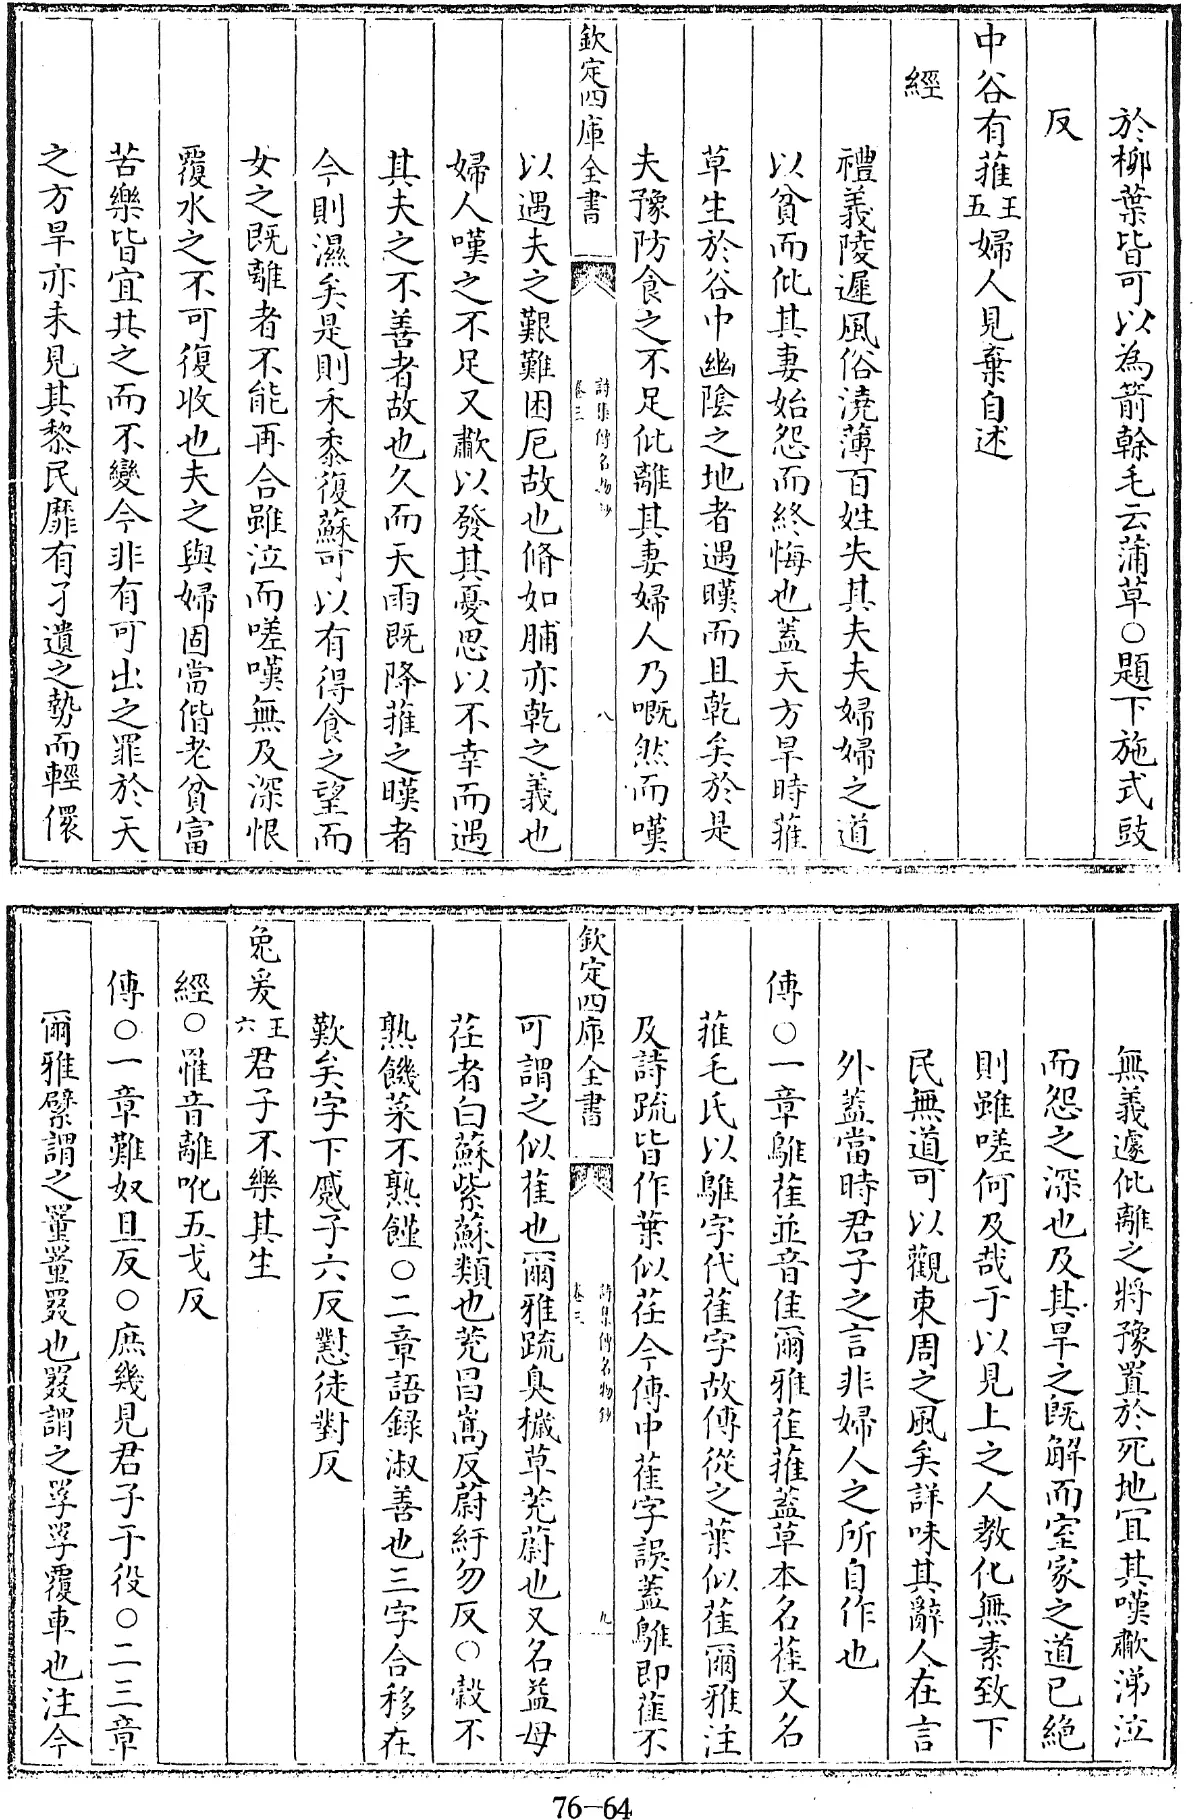 於柳葉皆可以為箭榦毛云蒲草○題下施式豉
反
中谷有蓷王五婦人見棄自述
經
禮義陵遲風俗澆薄百姓失其夫夫婦婦之道
以貧而仳其妻始怨而終悔也蓋天方旱時蓷
草生於谷中幽陰之地者遇暵而且乾矣於是
夫豫防食之不足仳離其妻婦人乃嘅然而嘆
欽定四庫全書
詩集傳名物鈔
卷三
八
以遇夫之艱難困厄故也脩如脯亦乾之義也
婦人嘆之不足又歗以發其憂思以不幸而遇
其夫之不善者故也久而天雨既降蓷之暵者
今則濕矣是則禾黍復蘇可以有得食之望而
女之既離者不能再合雖泣而嗟嘆無及深恨
覆水之不可復收也夫之與婦固當偕老貧富
苦樂皆宜共之而不變今非有可出之罪於天
之方旱亦未見其黎民靡有孑遺之勢而輕儇
無義遽仳離之將豫置於死地冝其嘆歗涕泣
而怨之深也及其旱之既解而室家之道已絶
則雖嗟何及哉于以見上之人教化無素致下
民無道可以觀東周之風矣詳味其辭人在言
外蓋當時君子之言非婦人之所自作也
傳○一章鵻萑並音隹爾雅萑蓷蓋草本名萑又名
蓷毛氏以鵻字代萑字故傳從之葉似萑爾雅注
及詩疏皆作葉似荏今傳中萑字誤蓋鵻即萑不
欽定四庫全書
詩集傳名物鈔
卷三
九
可謂之似萑也爾雅疏臭穢草茺蔚也又名益母
荏者白蘇紫蘇類也茺昌嵩反蔚紆勿反○穀不
熟饑菜不熟饉○二章語錄淑善也三字合移在
歎矣字下慼子六反懟徒對反
兔爰王六君子不樂其生
經○罹音離吪五戈反
傳○一章難奴旦反○庶幾見君子于役○二三章
爾雅繴謂之罿罿罬也罬謂之罦罦覆車也注今
76-64